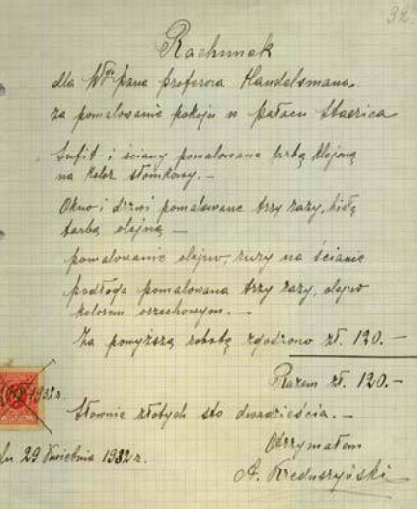 32
Rachunek
dla WPana profesora Handelsmana.
za pomalowanie pokoju w pałacu Staszica
Sufit i ściany pomalowane farbą klejową
na kolor słomkowy. —
Okno i drzwi pomalowane trzy razy, białą
farbą olejną —
pomalowanie olejno, rury na ścianie
podłoga pomalowana trzy razy, olejno
kolorem orzechowym. —
Za powyższą robotę zgodzono zł. 120. —
Razem zł. 120. —
Słownie złotych sto dwadzieścia. —
dn 29 Kwietnia 1932 r.
Otrzymałem
A.